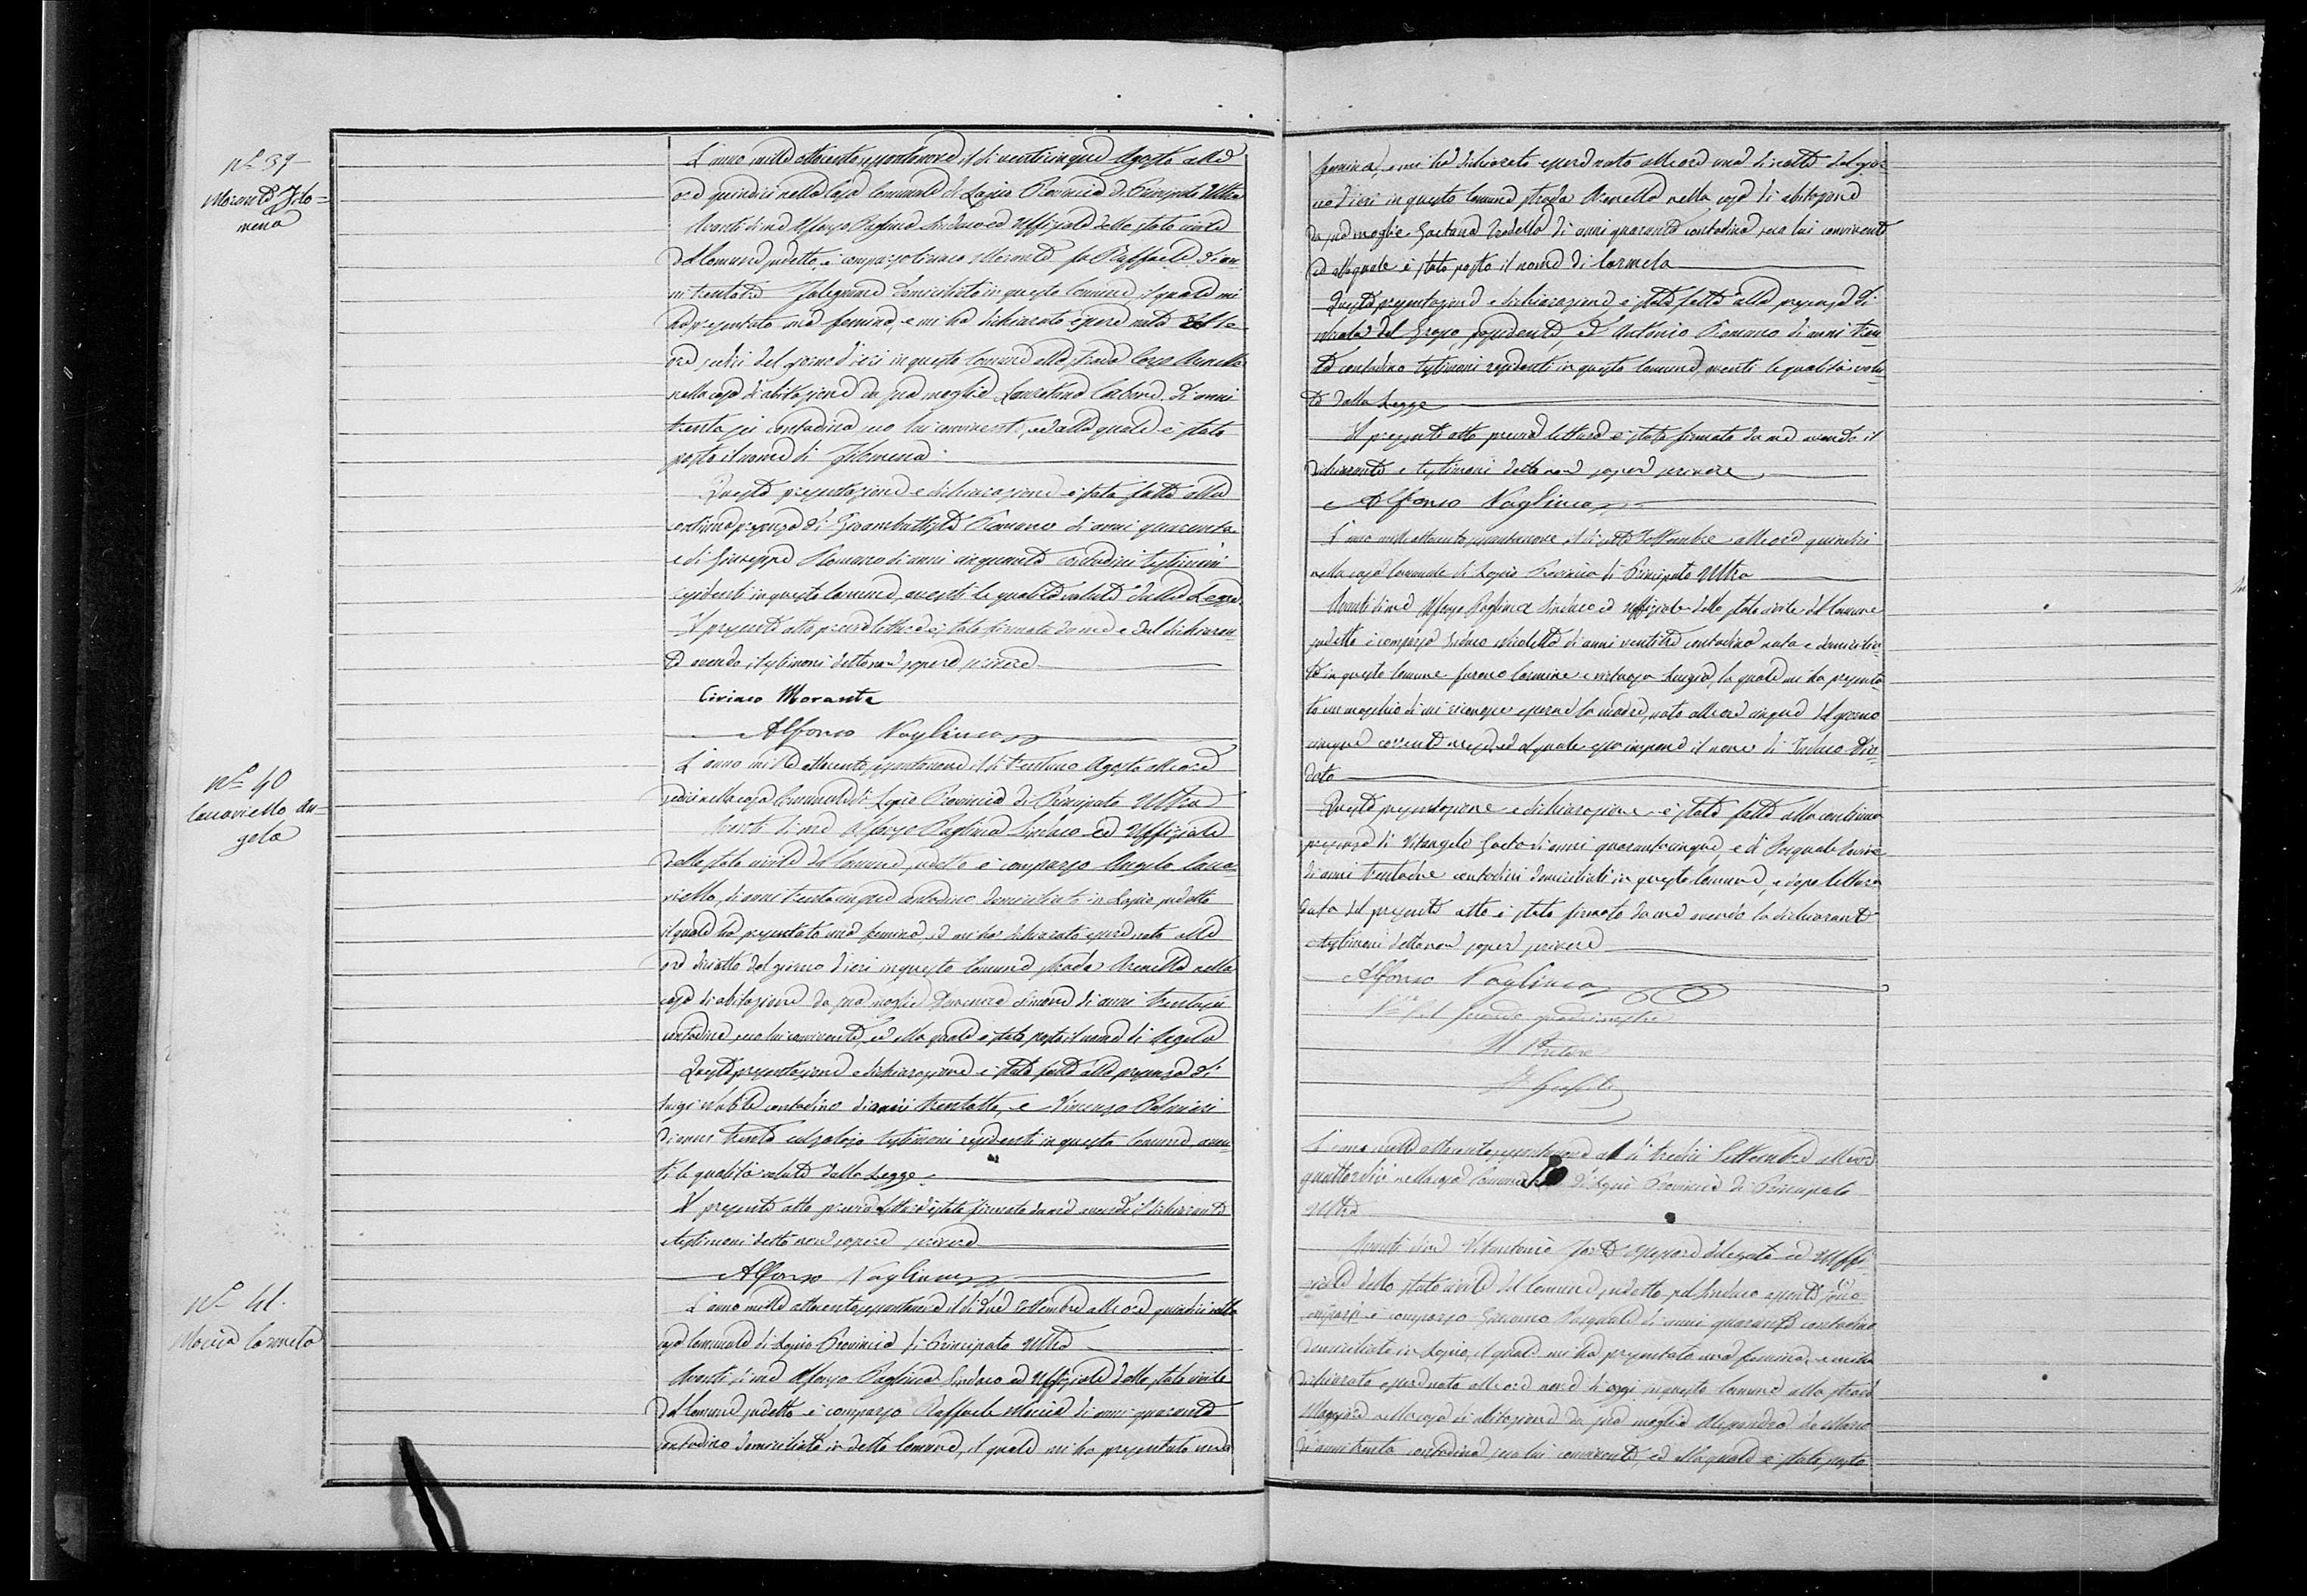 N.° 39
Morante Filo=
mena
L'anno mille ottocento sessantanove il dì venticinque Agosto alle
ore quindici nella Casa Comunale di Lapio Provincia di Principato Ultra
Avanti di me Alfonso Vagliuca Sindaco ed Uffiziale dello stato civile
del Comune sudetto, è comparso Ciriaco Morante fu Raffaele di an-
ni trentatre Falegname domiciliato in questo Comune, il quale mi
ha presentato una femina, e mi ha dichiarato essere nata alle
ore sedici del giorno d'ieri in questo Comune alla strada Corso
nella casa di abitazione da sua moglie Lauretana Carbone di anni
trenta sei contadina seco lui convivente, ed alla quale è stato
posto il nome di Filomena
Questa presentazione e dichiarazione è stata fatta alla
continua presenza di Giovambattista Romano di anni quaranta
e di Giuseppe Romano di anni cinquanta contadini testimoni
residenti in questo Comune, aventi le qualità volute dalla Legge.
Il presente atto previa lettura è stato firmato da me e dal dichiaran-
te avendo i testimoni detto non sapere scrivere
Ciriaco Morante
Alfonso Vagliuca
N.° 40
Caccaviello An-
gela
L'anno mille ottocento sessantanove il dì trentuno Agosto alle ore
sedici nella casa Comunale di Lapio Provincia di Principato Ultra
Avanti di me Alfonso Vagliuca Sindaco ed Uffiziale
dello stato civile del Comune sudetto è comparso Angelo Cacca-
viello, di anni trentacinque contadino domiciliato in Lapio sudetto
il quale ha presentato una femina, ed mi ha dichiarato essere nata alle
ore diciotto del giorno d'ieri in questo Comune strada Arenella nella
casa di abitazione da sua moglie Simone di anni trentasei
contadina seco lui convivente, ed alla quale è stato posto il nome di Angela
Questa presentazione e dichiarazione è stata fatta alla presenza di
Luigi contadino di anni trentotto, e Vincenzo
di anni trenta calzolajo testimoni residenti in questo Comune, aven-
ti le qualità volute dalla Legge.
Il presente atto previa lettura è stato firmato da me avendo il dichiarante
e testimoni detto non sapere scrivere
Alfonso Vagliuca
N.° 41.
Maria Carmela
L'anno mille ottocento sessantanove il dì due Settembre alle ore quindici nella
casa Comunale di Lapio Provincia di Principato Ultra
Avanti di me Alfonso Vagliuca Sindaco ed Uffiziale dello stato civile
del Comune sudetto è comparso Raffaele di anni quaranta
contadino domiciliato in detto Comune, il quale mi ha presentato una
femina, e mi ha dichiarato essere nata alle ore una di notte del gior-
no d'ieri in questo Comune strada Arenella nella casa di abitazione
da sua moglie Gaetana di anni quaranta contadina seco lui convivente
ed alla quale è stato posto il nome di Carmela
Questa presentazione e dichiarazione è stata fatta alla presenza di
Nicola del Grosso, possidente, ed Antonio Romano di anni tren-
ta contadino testimoni residenti in questo Comune, aventi le qualità volu-
te dalla Legge
Il presente atto previa lettura è stato firmato da me avendo il
dichiarante e testimoni detto non sapere scrivere
Alfonso Vagliuca
L'anno mille ottocento sessantanove il dì sette Settembre alle ore quindici
nella casa Comunale di Lapio Provincia di Principato Ultra
Avanti di me Alfonso Vagliuca Sindaco ed Uffiziale dello stato civile del Comune
sudetto è comparsa Nicoletta di anni ventitre contadina nata e domicilia-
ta in questo Comune furono Carmine e la quale mi ha presenta-
to un maschio di cui riconosce esserne la madre, nato alle ore cinque del giorno
cinque corrente mese, ed al quale essa impone il nome di
dato
Questa presentazione e dichiarazione è stata fatta alla continua
presenza di Vitangelo Gaeta di anni quarantacinque, e di Pasquale
di anni trentadue contadini domiciliati in questo Comune, e dopo lettura
data del presente atto è stato firmato da me avendo la dichiarante
e testimoni detto non sapere scrivere
Alfonso Vagliuca
secondo quadrimestre
Il Pretore
L'anno mille ottocento sessantanove al dì tredici Settembre alle ore
quattordici nella casa Comunale di Lapio Provincia di Principato
Ultra
Avanti di me Vitantonio Assessore delegato ed Uffi-
ziale dello stato civile del Comune sudetto pel Sindaco assente
è comparso Pasquale di anni quaranta contadino
domiciliato in Lapio, il quale mi ha presentato una femina, e mi ha
dichiarato essere nata alle ore nove di oggi in questo Comune alla strada
Maggiore nella casa di abitazione da sua moglie Alessandra
di anni trenta contadina seco lui convivente, ed alla quale è stato posto